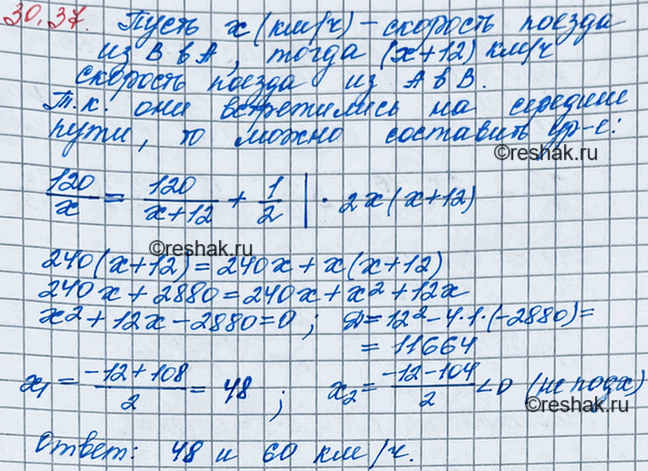 30.37. Пусть x (км/ч) – скорость поезда
из B в A, тогда (x+12) км/ч
скорость поезда из A в B.
Т.к. они встретились на середине
пути, то можно составить ур-е:
©reshak.ru
120/x = 120/(x+12) + 1/2 | · 2x(x+12)
©reshak.ru
240(x+12) = 240x + x(x+12)
240x + 2880 = 240x + x² + 12x
x² + 12x - 2880 = 0; D = 12² - 4·1·(-2880) =
= 11664
x₁ = (-12+108)/2 = 48; x₂ = (-12-104)/2 < 0 (не подх)
©reshak.ru
Ответ: 48 и 60 км/ч.